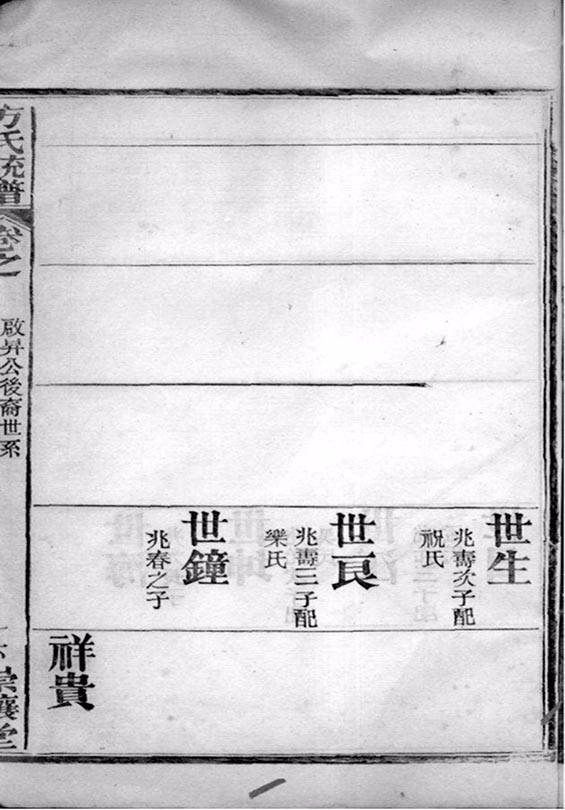 世生
兆壽次子配
祝氏
世良
兆壽三子配
樂氏
世鐘
兆春之子
祥貴
方氏統譜
卷之
啟昇公後裔世系